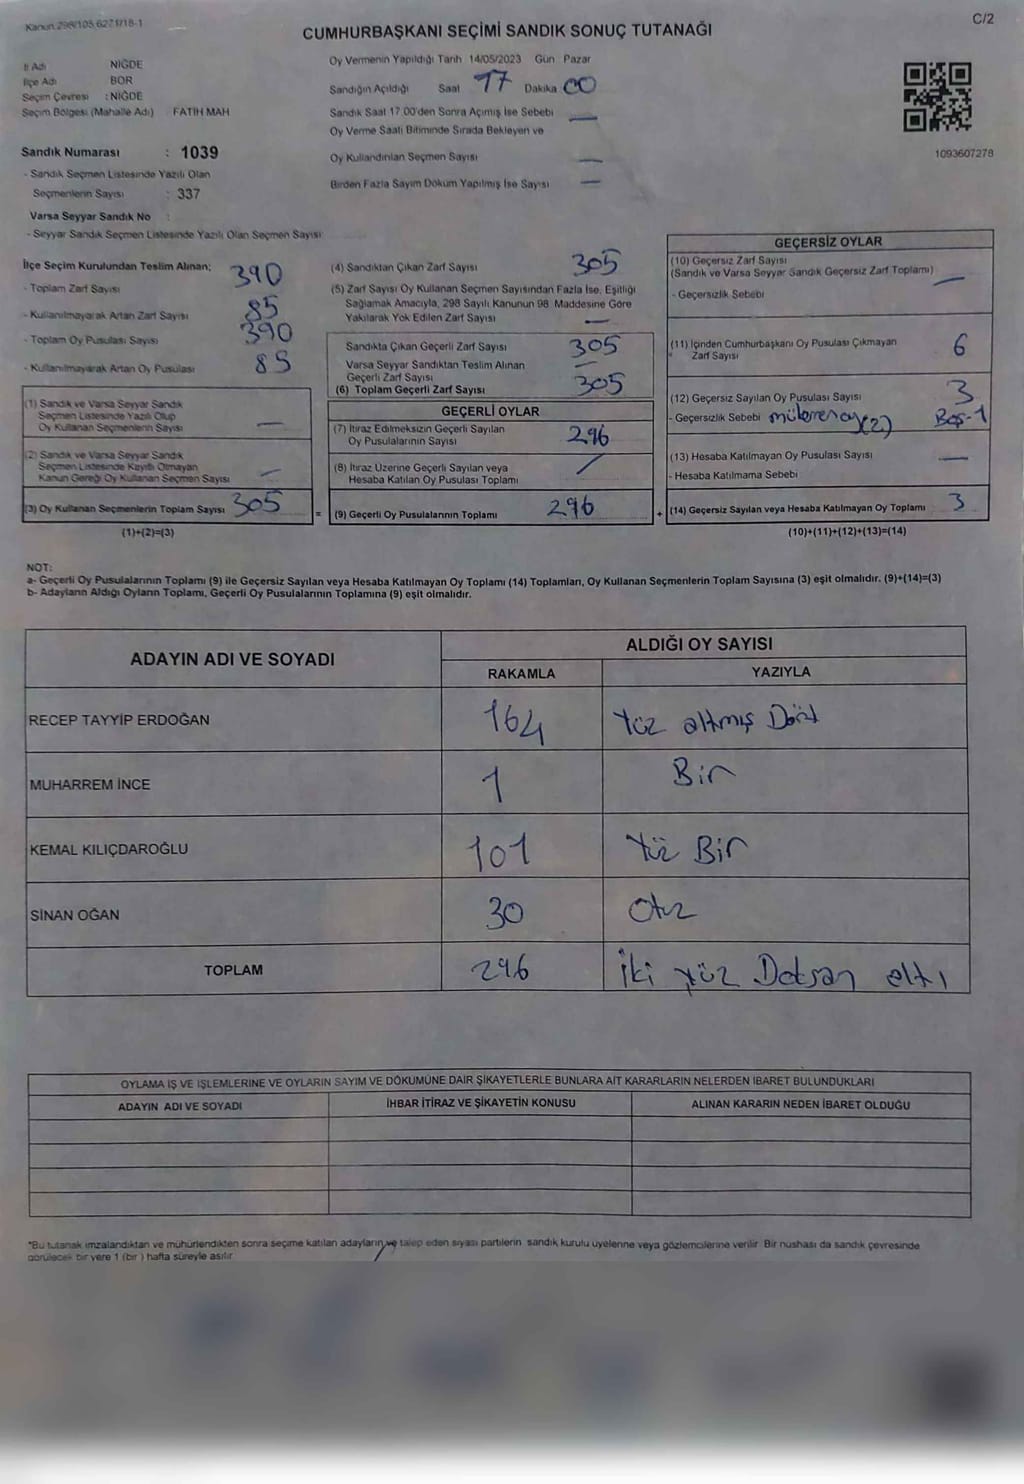 Kanun 298/105,6271/18-1
C/2
CUMHURBAŞKANI SEÇİMİ SANDIK SONUÇ TUTANAĞI
İl Adı NİĞDE
İlçe Adı BOR
Seçim Çevresi : NİĞDE
Seçim Bölgesi (Mahalle Adı) FATİH MAH
Sandık Numarası : 1039
- Sandık Seçmen Listesinde Yazılı Olan
Seçmenlerin Sayısı : 337
Varsa Seyyar Sandık No :
- Seyyar Sandık Seçmen Listesinde Yazılı Olan Seçmen Sayısı
Oy Vermenin Yapıldığı Tarih 14/05/2023 Gün Pazar
Sandığın Açıldığı Saat 17 Dakika 00
Sandık Saat 17:00'den Sonra Açımış İse Sebebi —
Oy Verme Saati Bitiminde Sırada Bekleyen ve
Oy Kullandırılan Seçmen Sayısı —
Birden Fazla Sayım Döküm Yapılmış İse Sayısı —
1093607278
İlçe Seçim Kurulundan Teslim Alınan;
- Toplam Zarf Sayısı 390
- Kullanılmayarak Artan Zarf Sayısı 85
- Toplam Oy Pusulası Sayısı 390
- Kullanılmayarak Artan Oy Pusulası 85
(1) Sandık ve Varsa Seyyar Sandık
Seçmen Listesinde Yazılı Olup
Oy Kullanan Seçmenlerin Sayısı —
(2) Sandık ve Varsa Seyyar Sandık
Seçmen Listesinde Kayıtlı Olmayan
Kanun Gereği Oy Kullanan Seçmen Sayısı —
(3) Oy Kullanan Seçmenlerin Toplam Sayısı 305
(1)+(2)=(3)
(4) Sandıktan Çıkan Zarf Sayısı 305
(5) Zarf Sayısı Oy Kullanan Seçmen Sayısından Fazla İse, Eşitliği
Sağlamak Amacıyla, 298 Sayılı Kanunun 98. Maddesine Göre
Yakılarak Yok Edilen Zarf Sayısı —
Sandıkta Çıkan Geçerli Zarf Sayısı 305
Varsa Seyyar Sandıktan Teslim Alınan
Geçerli Zarf Sayısı
(6) Toplam Geçerli Zarf Sayısı 305
GEÇERLİ OYLAR
(7) İtiraz Edilmeksizin Geçerli Sayılan
Oy Pusulalarının Sayısı 296
(8) İtiraz Üzerine Geçerli Sayılan veya
Hesaba Katılan Oy Pusulası Toplamı /
= (9) Geçerli Oy Pusulalarının Toplamı 296
GEÇERSİZ OYLAR
(10) Geçersiz Zarf Sayısı
(Sandık ve Varsa Seyyar Sandık Geçersiz Zarf Toplamı) —
- Geçersizlik Sebebi
(11) İçinden Cumhurbaşkanı Oy Pusulası Çıkmayan
Zarf Sayısı 6
(12) Geçersiz Sayılan Oy Pusulası Sayısı 3
- Geçersizlik Sebebi (2) Boş-1
(13) Hesaba Katılmayan Oy Pusulası Sayısı —
- Hesaba Katılmama Sebebi
+ (14) Geçersiz Sayılan veya Hesaba Katılmayan Oy Toplamı 3
(10)+(11)+(12)+(13)=(14)
NOT:
a- Geçerli Oy Pusulalarının Toplamı (9) ile Geçersiz Sayılan veya Hesaba Katılmayan Oy Toplamı (14) Toplamları, Oy Kullanan Seçmenlerin Toplam Sayısına (3) eşit olmalıdır. (9)+(14)=(3)
b- Adayların Aldığı Oyların Toplamı, Geçerli Oy Pusulalarının Toplamına (9) eşit olmalıdır.
ADAYIN ADI VE SOYADI
ALDIĞI OY SAYISI
RAKAMLA YAZIYLA
RECEP TAYYİP ERDOĞAN 164 Yüz altmış Dört
MUHARREM İNCE 1 Bir
KEMAL KILIÇDAROĞLU 101 Yüz Bir
SİNAN OĞAN 30 Otuz
TOPLAM 296 İki yüz Doksan altı
OYLAMA İŞ VE İŞLEMLERİNE VE OYLARIN SAYIM VE DÖKÜMÜNE DAİR ŞİKAYETLERLE BUNLARA AİT KARARLARIN NELERDEN İBARET BULUNDUKLARI
ADAYIN ADI VE SOYADI İHBAR İTİRAZ VE ŞİKAYETİN KONUSU ALINAN KARARIN NEDEN İBARET OLDUĞU
*Bu tutanak imzalandıktan ve mühürlendikten sonra seçime katılan adayların ve talep eden siyasi partilerin sandık kurulu üyelerine veya gözlemcilerine verilir. Bir nüshası da sandık çevresinde
görülecek bir yere 1 (bir) hafta süreyle asılır.